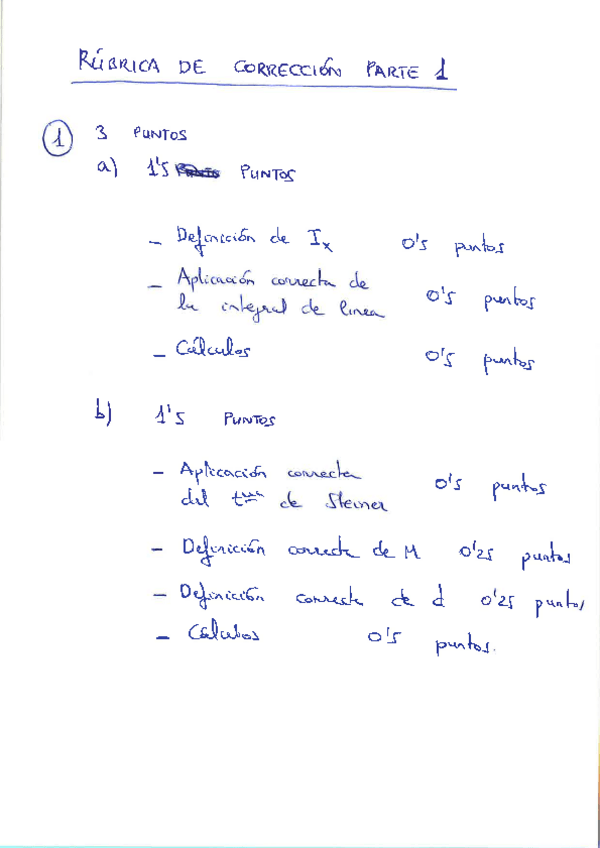 RÚBRICA DE CORRECCIÓN PARTE 1
1 3 PUNTOS
a) 1'5 PUNTOS
- Definición de Ix 0'5 puntos
- Aplicación correcta de
la integral de linea 0'5 puntos
- Cálculos 0'5 puntos
b) 1'5 PUNTOS
- Aplicación correcta
del tma de Steiner 0'5 puntos
- Definición correcta de M 0'25 puntos
- Definición correcta de d 0'25 puntos
- Cálculos 0'5 puntos.